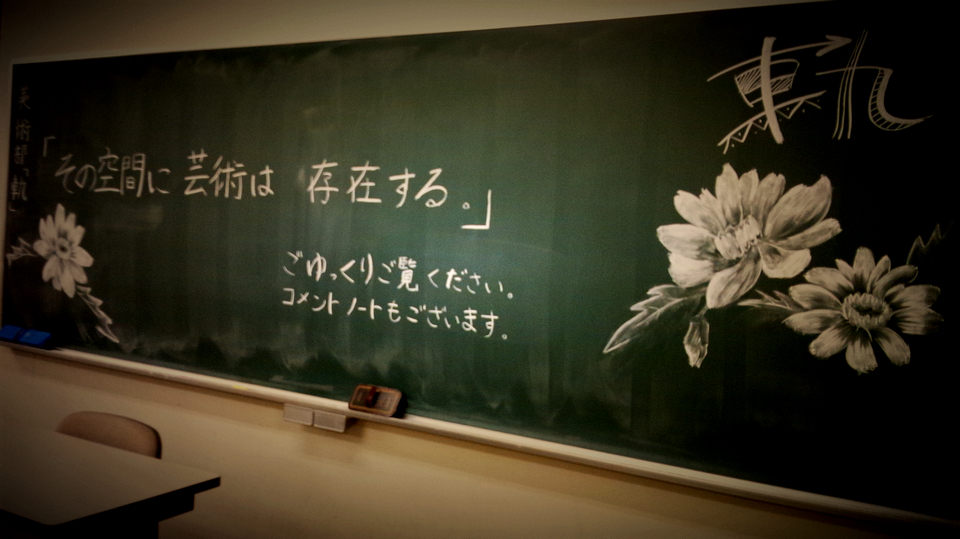 美術部「軌」
「その空間に 芸術は 存在する。」
ごゆっくりご覧ください。
コメントノートもございます。
軌